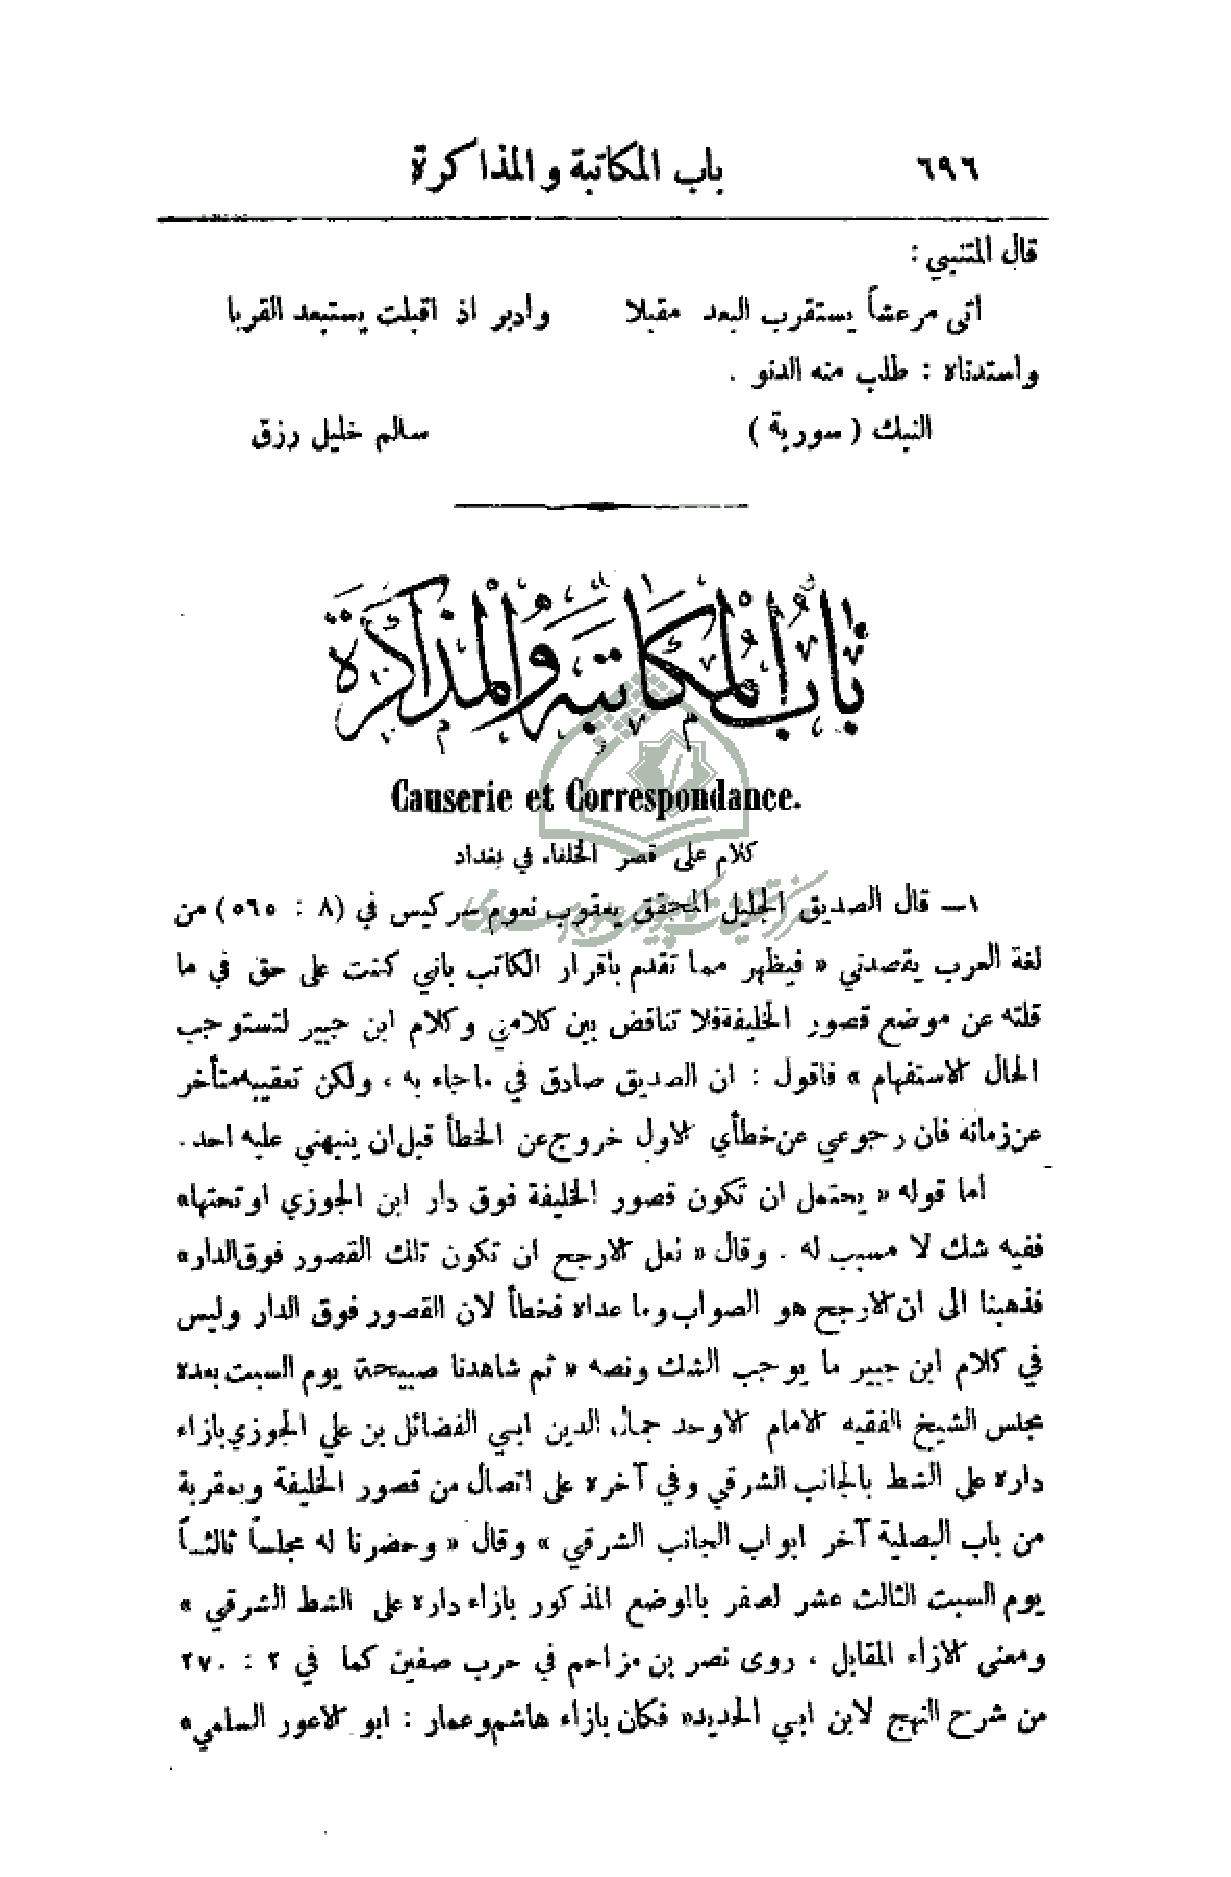 ٦٩٦ باب المكاتبة والمذاكرة
قال المتنبي :
أتى مرعشاً يستقرب البعد مقبلا وأدبر اذ اقبلت يستبعد القربا
واستدناه : طلب منه الدنو .
النبك ( سورية ) سالم خليل رزق
باب المكاتبة والمذاكرة
Causerie et Correspondance.
كلام على قصر الخلفاء في بغداد
١ — قال الصديق الجليل المحقق يعقوب نعوم سركيس في (٨ : ٥٦٥) من
لغة العرب يقصدني « فيظهر مما تقدم باقرار الكاتب باني كنت على حق في ما
قلته عن موضع قصور الخليفة فلا تناقض بين كلامي وكلام ابن جبير لتستوجب
الحال الاستفهام » فاقول : ان الصديق صادق في ماجاء به ، ولكن تعقيبه متأخر
عن زمانه فان رجوعي عن خطأي الاول خروج عن الخطأ قبل ان ينبهني عليه احد .
أما قوله « يحتمل ان تكون قصور الخليفة فوق دار ابن الجوزي او تحتها »
ففيه شك لا مسبب له . وقال « نعل الارجح ان تكون تلك القصور فوق الدار »
فذهبنا الى ان الارجح هو الصواب وما عداه فخطأ لان القصور فوق الدار وليس
في كلام ابن جبير ما يوجب الشك ونصه « ثم شاهدنا صبيحة يوم السبت بعده
مجلس الشيخ الفقيه الامام الاوحد جمال الدين ابي الفضائل بن علي الجوزي بازاء
داره على الشط بالجانب الشرقي وفي آخره على اتصال من قصور الخليفة وبمقربة
من باب البصلية آخر ابواب الجانب الشرقي » وقال « وحضرنا له مجلساً ثالثاً
يوم السبت الثالث عشر لصفر بالموضع المذكور بازاء داره على الشط الشرقي »
ومعنى الازاء المقابل ، روى نصر بن مزاحم في حرب صفين كما في ٢ : ٢٧٠
من شرح النهج لابن ابي الحديد « فكان بازاء هاشم وعمار : ابو الاعور السلمي »